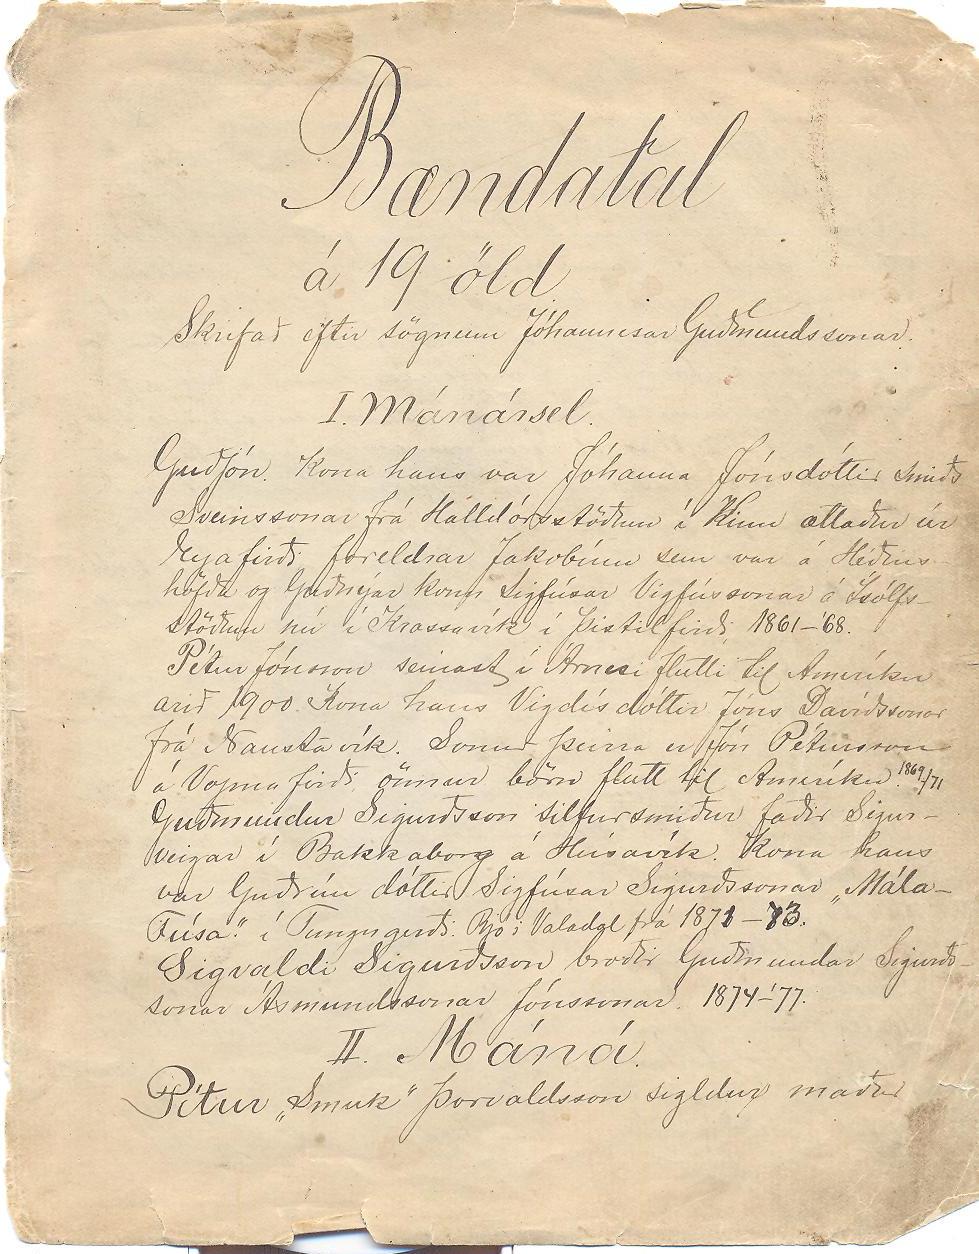 Bændatal
á 19 öld
Skrifað eftir sögnum Jóhannesar Guðmundssonar.
I. Mánársel.
Guðjón. Kona hans var Jóhanna Jónsdóttir smiðs
Sveinssonar frá Halldórsstöðum í Kinn ættaður úr
Eyjafirði foreldrar Jakobínu sem var á Héðins-
höfða og Guðnýjar konu Sigfúsar Vigfússonar á Ísólfs-
stöðum nú í Krossavík í Þistilfirði 1861-'68.
Pétur Jónsson seinast í Árnesi flutti til Ameríku
árið 1900. Kona hans Vigdís dóttir Jóns Davíðssonar
frá Naustavík. Sonur þeirra er Jón Pétursson
á Vopnafirði önnur börn flutt til Ameríku. 1869-/71
Guðmundur Sigurðsson silfursmiður faðir Sigur-
veigar í Bakkaborg á Húsavík. Kona hans
var Guðrún dóttir Sigfúsar Sigurðssonar „Mála-
Fúsa“ í Tungugerði. Bjó í Valadal frá 1871-73.
Sigvaldi Sigurðsson bróðir Guðmundar Sigurðs-
sonar Ásmundssonar Jónssonar. 1874-'77.
II. Máná.
Pétur „Smuk“ Þorvaldsson sigldur maður